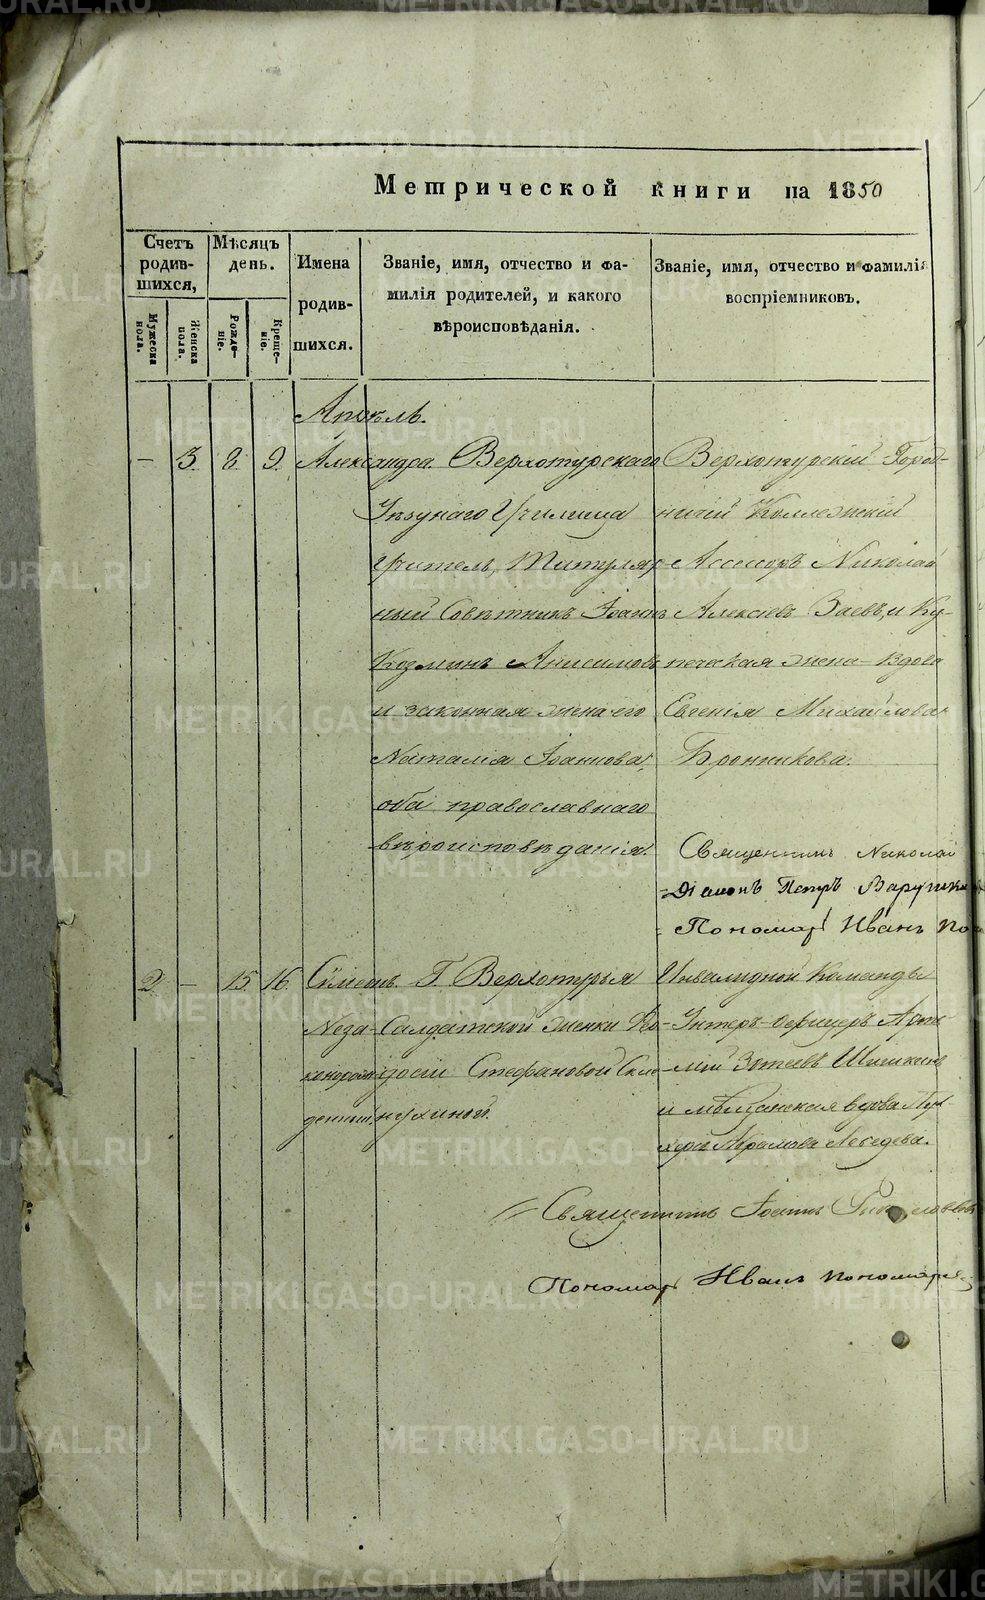 Метрической книги на 1850
Счетъ родив-шихся,
Мужеска пола.
Женска пола.
Мѣсяцъ день.
Рожде-ніе.
Креще-ніе.
Имена родив-шихся.
Званіе, имя, отчество и фа-
милія родителей, и какого
вѣроисповѣданія.
Званіе, имя, отчество и фамилія
воспріемниковъ.
Апрѣль.
— 3. 8. 9. Александра.
Верхотурскаго
Уѣзднаго Училища
Учитель, Титуляр-
ный Совѣтникъ Іоаннъ
Козминъ Анисимовъ
и законная жена его
Наталія Іоаннова,
оба православнаго
вѣроисповѣданія.
Верхотурскій Город-
ничій Коллежскій
Ассесоръ Николай
Алексѣевъ Заевъ, и Ку-
печеская жена вдова
Евгенія Михайлова
Бронникова.
Священникъ Николай
Діаконъ Петръ
Пономарь Иванъ
2 — 15. 16. Сѵмеонъ.
Неза-
конорож
денный.
Г. Верхотурья
Салдатской женки Ѳео-
досіи Стефановой
Инвалидной Команды
Унтеръ-Офицеръ
Зотеевъ Шишкинъ
и мѣщанская вдова
Абрамова Лебедева.
Священникъ Іоаннъ
Пономарь Иванъ Пономаревъ
METRIKI.GASO-URAL.RU